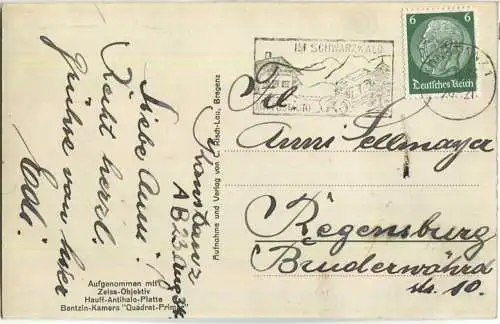 Liebe Anni!
Recht herzl.
Grüsse von hier
Edi.
23. Aug 34.
Aufgenommen mit:
Zeiss-Objektiv
Hauff-Antihalo-Platte
Bentzin-Kamera "Quadrat-Primar"
Aufnahme und Verlag von C. Risch-Lau, Bregenz
IM SCHWARZWALD
6 6
Deutsches Reich
Frl.
Anni Sellmayer
Regensburg
Bruderwöhrd
str. 10.